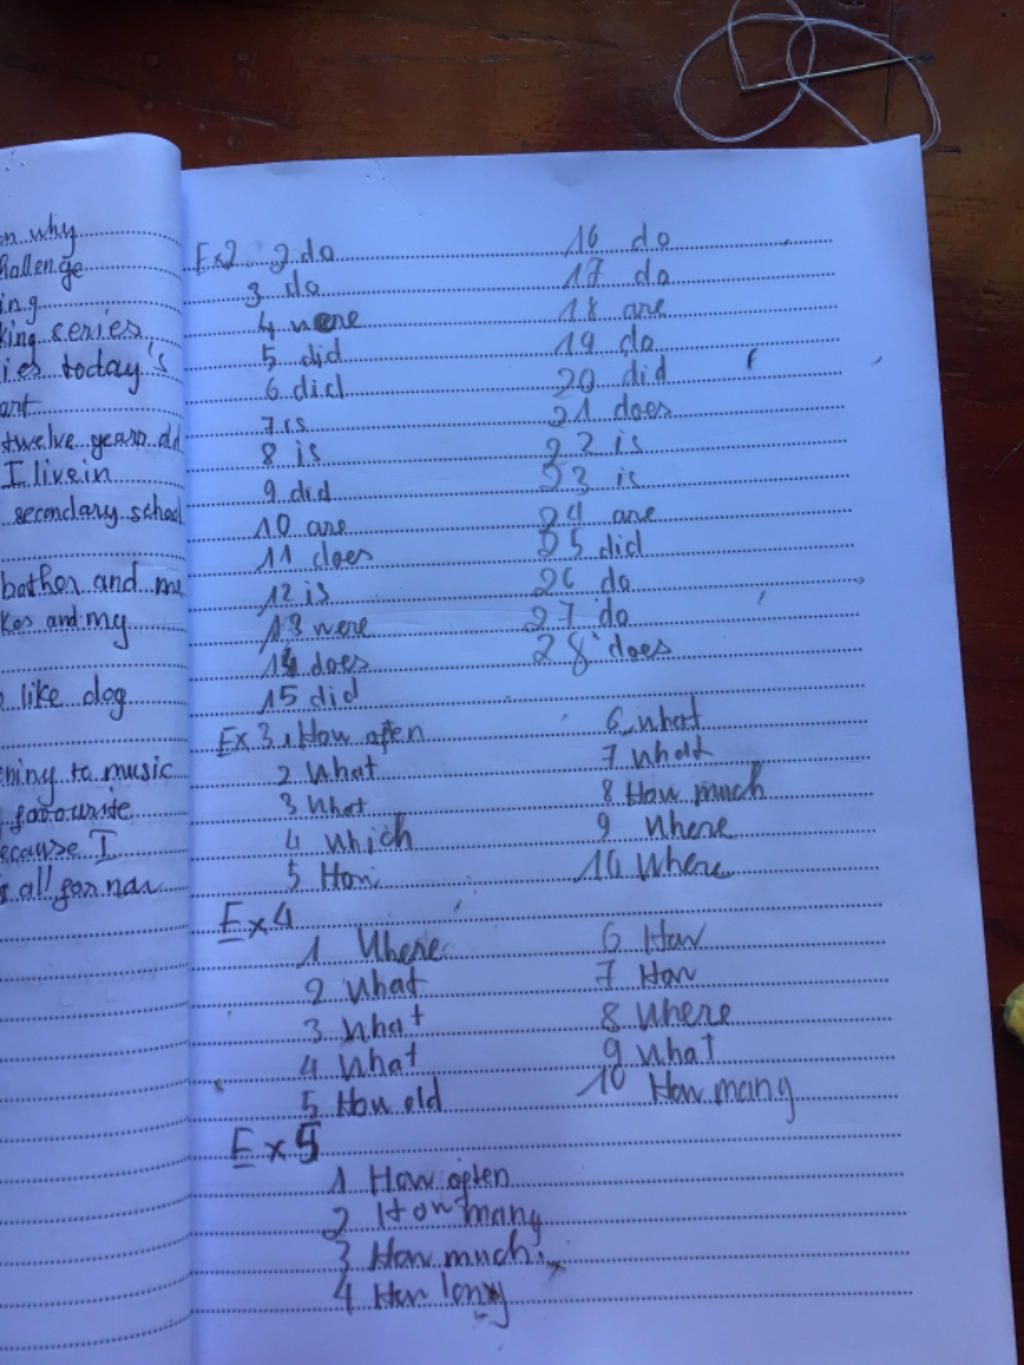 on why
hallenge
ing
king series
ies today's
art
twelve years old
I live in
secondary school
bother and me
kes and my
like dog
ening to music
favourite
ecause I
s all for now
Ex2 2 do
3 do
4 were
5 did
6 did
7 is
8 is
9 did
10 are
11 does
12 is
13 were
14 does
15 did
16 do
17 do
18 are
19 do
20 did
21 does
22 is
23 is
24 are
25 did
26 do
27 do
28 does
Ex 3. How often
2 What
3 What
4 Which
5 How
6 what
7 What
8 How much
9 Where
10 Where
Ex 4
1 Where
2 What
3 What
4 What
5 How old
6 How
7 How
8 Where
9 What
10 How many
Ex 5
1 How often
2 How many
3 How much
4 How long